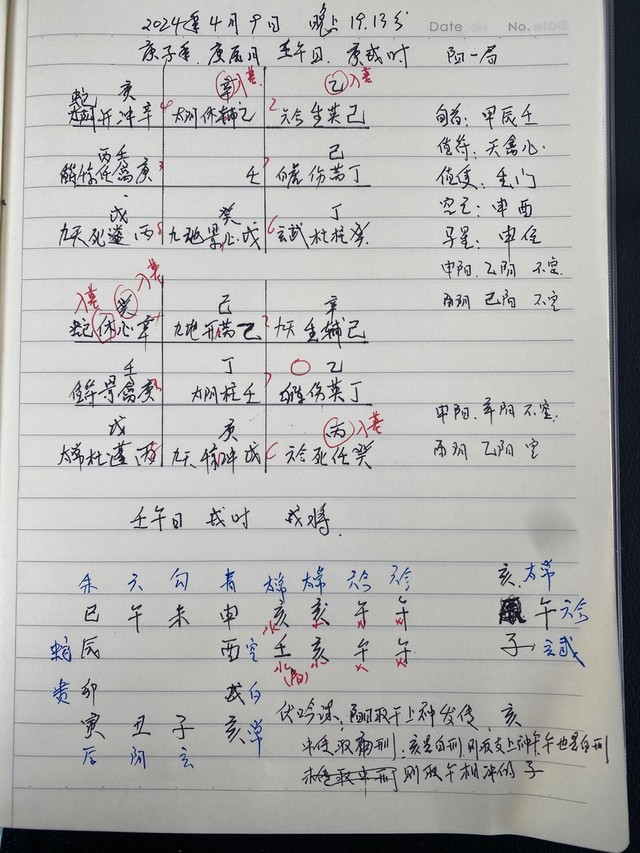 2024年4月9日 晚上19.13分
Date No. Date
庚子年. 庚辰月 壬午日. 庚戌时 阳一局
亥 辛 入墓 乙 入墓
蛇 开冲辛 4 太阴休辅乙 2 六合生英己
旬首: 甲辰壬
值符: 天禽心
丙壬 己
任禽庚 3 壬 7 白虎伤芮丁
值使: 生门
空亡: 申酉
戊 癸 丁
九天死蓬丙 8 九地景心戊 6 玄武杜柱癸
马星: 申任
申阳. 乙阴 不空.
丙阴 己阳 不空
入墓 癸 入墓 己 辛
蛇休心辛 九地开芮乙 九天生辅己
壬 丁 乙
值符景禽庚 太阴柱壬 7 伤英丁
申阳. 辛阴 不空.
戊 庚 丙 入墓
太常杜蓬丙 九天惊冲戊 6 六合死任癸
丙阴 乙阳 空
壬午日 戌时 戌将.
朱 六 勾 青 太常 太常 六合 六合 亥 太常
巳 午 未 申 亥 亥 午 午 午 六合
辰 酉 空 壬 亥 午 午 子 玄武
贵 卯 戌 白
寅 丑 子 亥 常
后 阴 玄
伏吟课, 阳时取干上神发传, 亥
中传取刑: 亥是自刑 则取支上神午午也是自刑
则取午相冲的子